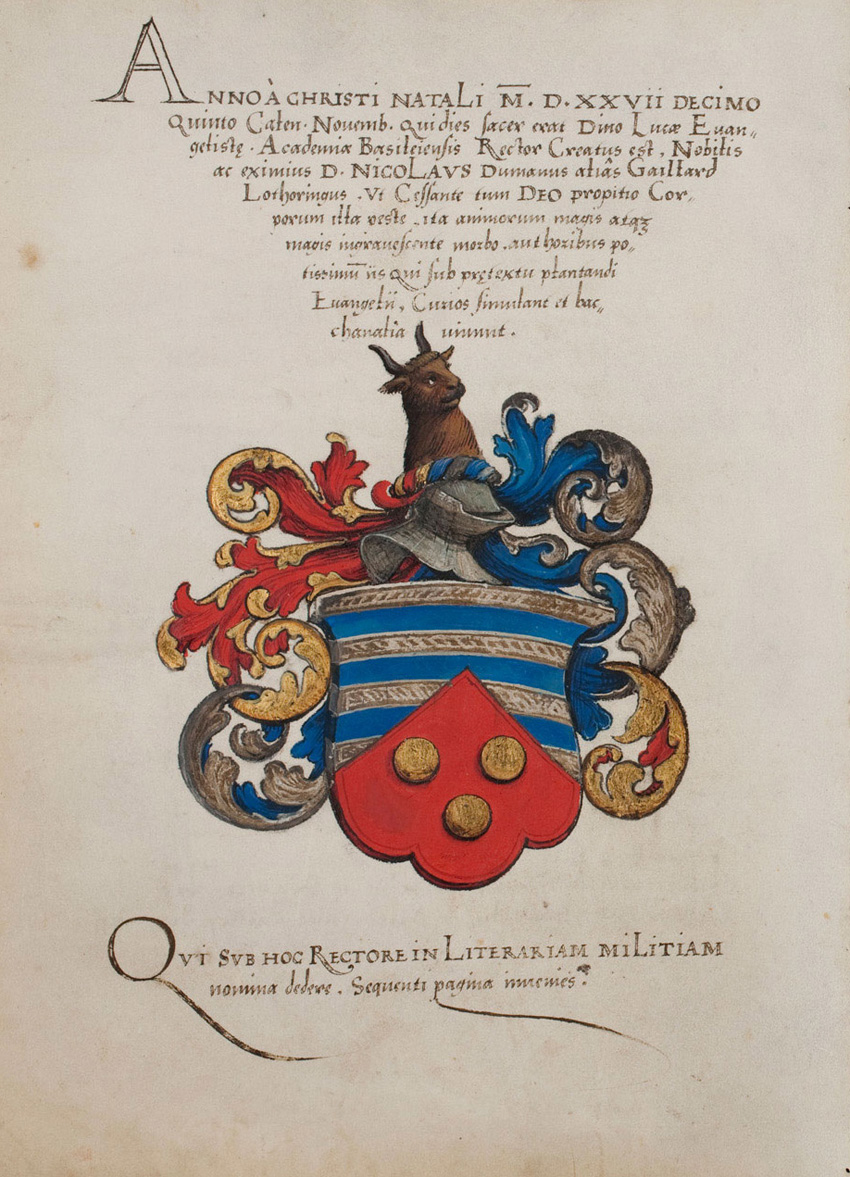 ANNO À CHRISTI NATALI M̅. D. XXVII DECIMO
Quinto Calen. Nouemb. Qui dies sacer erat Diuo Lucæ Euan„
gelistę. Academiæ Basileiensis Rector Creatus est, Nobilis
ac eximius D. NICOLAVS Dumanus aliâs Gaillard
Lothoringus. Vt Cessante tum DEO propitio Cor„
porum illa peste, ita animorum magis atqz
magis ingrauescente morbo, authoribus po„
tissimū iis qui sub prętextu plantandi
Euangelii, Curios simulant et bac„
chanalia uiuunt.
QVI SVB HOC RECTORE IN LITERARIAM MILITIAM
nomina dedere. Sequenti pagina inuenies.